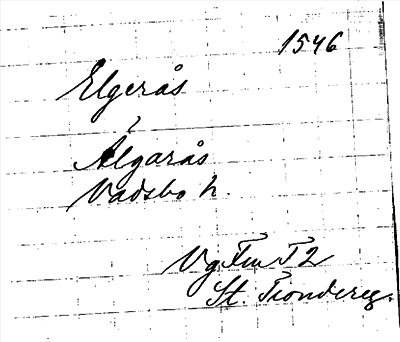 1546
Elgerås
Älgarås
Vadsbo h.
Vg Fw T2
St. Tiondereg.